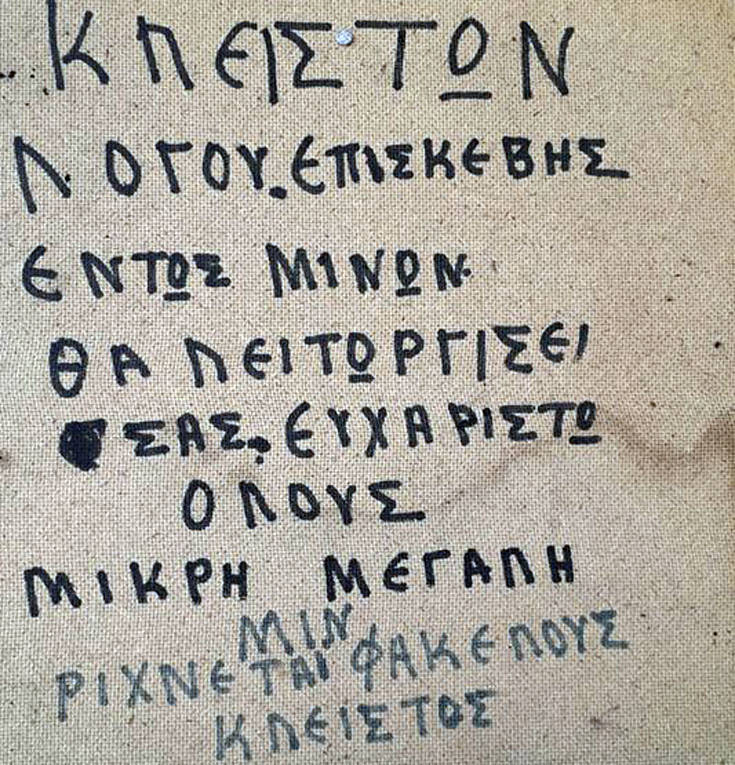 ΚΛΕΙΣΤΩΝ
ΛΟΓΟΥ.ΕΠΙΣΚΕΒΗΣ
ΕΝΤΩΣ ΜΙΝΩΝ
ΘΑ ΛΕΙΤΩΡΓΙΣΕΙ
ΣΑΣ, ΕΥΧΑΡΙΣΤΩ
ΟΛΟΥΣ
ΜΙΚΡΗ ΜΕΓΑΛΗ
ΜΙΝ
ΡΙΧΝΕΤΑΙ ΦΑΚΕΛΟΥΣ
ΚΛΕΙΣΤΩΣ